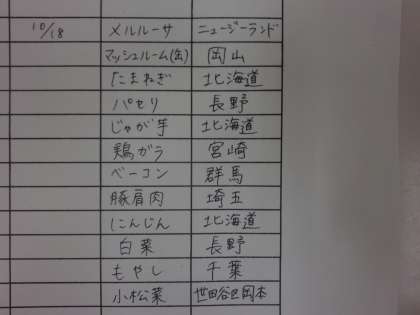 10/18 メルルーサ ニュージーランド
マッシュルーム(缶) 岡山
たまねぎ 北海道
パセリ 長野
じゃが芋 北海道
鶏ガラ 宮崎
ベーコン 群馬
豚肩肉 埼玉
にんじん 北海道
白菜 長野
もやし 千葉
小松菜 世田谷区岡本